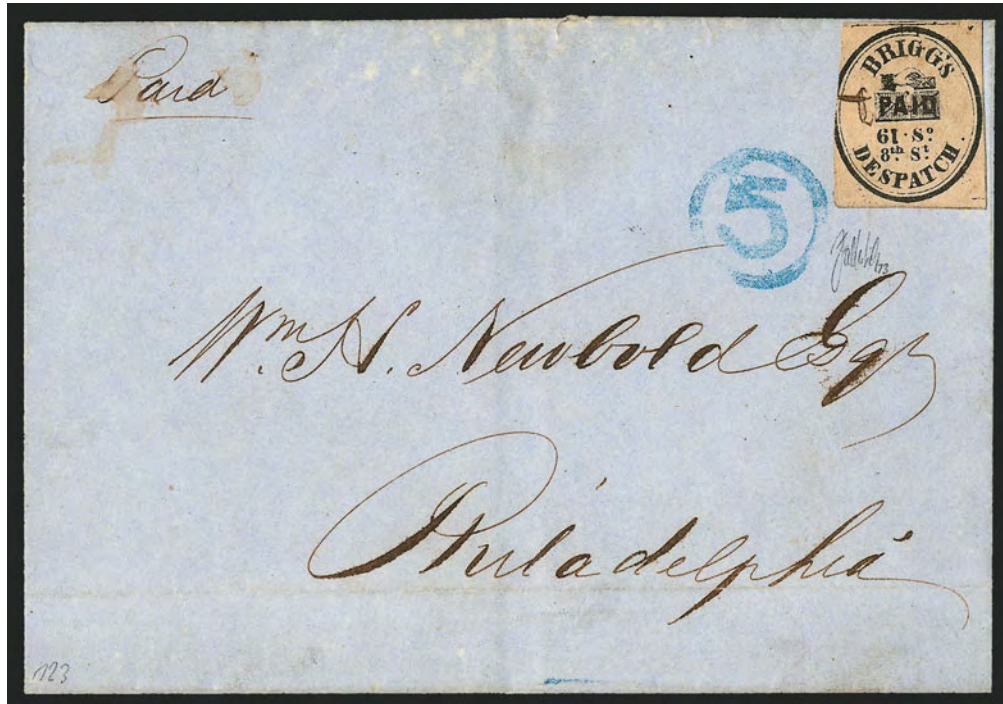 Paid
BRIGG'S
PAID
61 · Sº
8th St
DESPATCH
5
Wm. H. Newbold Esqr
Philadelphia
123